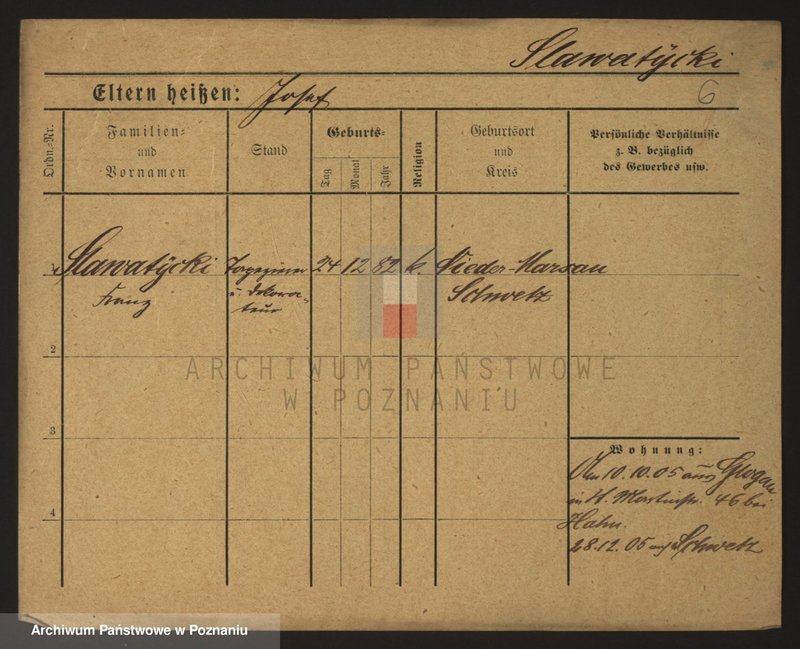 Slawatÿcki
6
Eltern heißen: Josef
Ordn.-Nr.
Familien-
und
Vornamen
Stand
Geburts-
Tag
Monat
Jahr
Religion
Geburtsort
und
Kreis
Persönliche Verhältnisse
z. B. bezüglich
des Gewerbes usw.
1
Slawatÿcki
Franz
Tapezierer
u. Dekora-
teur
24 12 82 k. Nieder-Marsau
Schwetz
2
3
4
Wohnung:
Am 10.10.05 aus Glogau
in St. Martinstr. 46 bei
Hahn.
28.12.05 auf Schwetz
ARCHIWUM PAŃSTWOWE
W POZNANIU
Archiwum Państwowe w Poznaniu